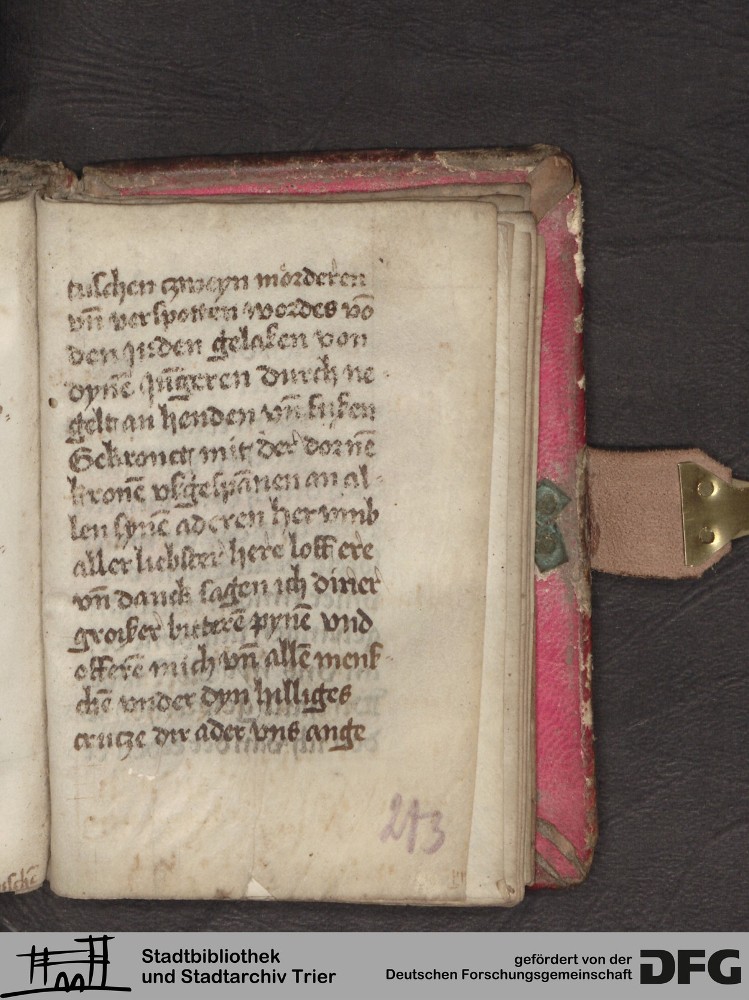 tuschen czweyn mordeten
vn̄ verspotten wordes vō
den juden gelasen von
dynē jūgeren durch ne
gelt an henden vn̄ fusen
Gekronet mit der dornē
kronē vsgespānen an al-
len synē aderen her vmb
aller liebster here loff ere
vn̄ danck sagen ich diner
groiser bitterē pynē vnd
offerē mich vn̄ allē mensc-
chē vnder dyn hilliges
crutze dir ader vns ange
213
Stadtbibliothek
und Stadtarchiv Trier
gefördert von der
Deutschen Forschungsgemeinschaft
DFG